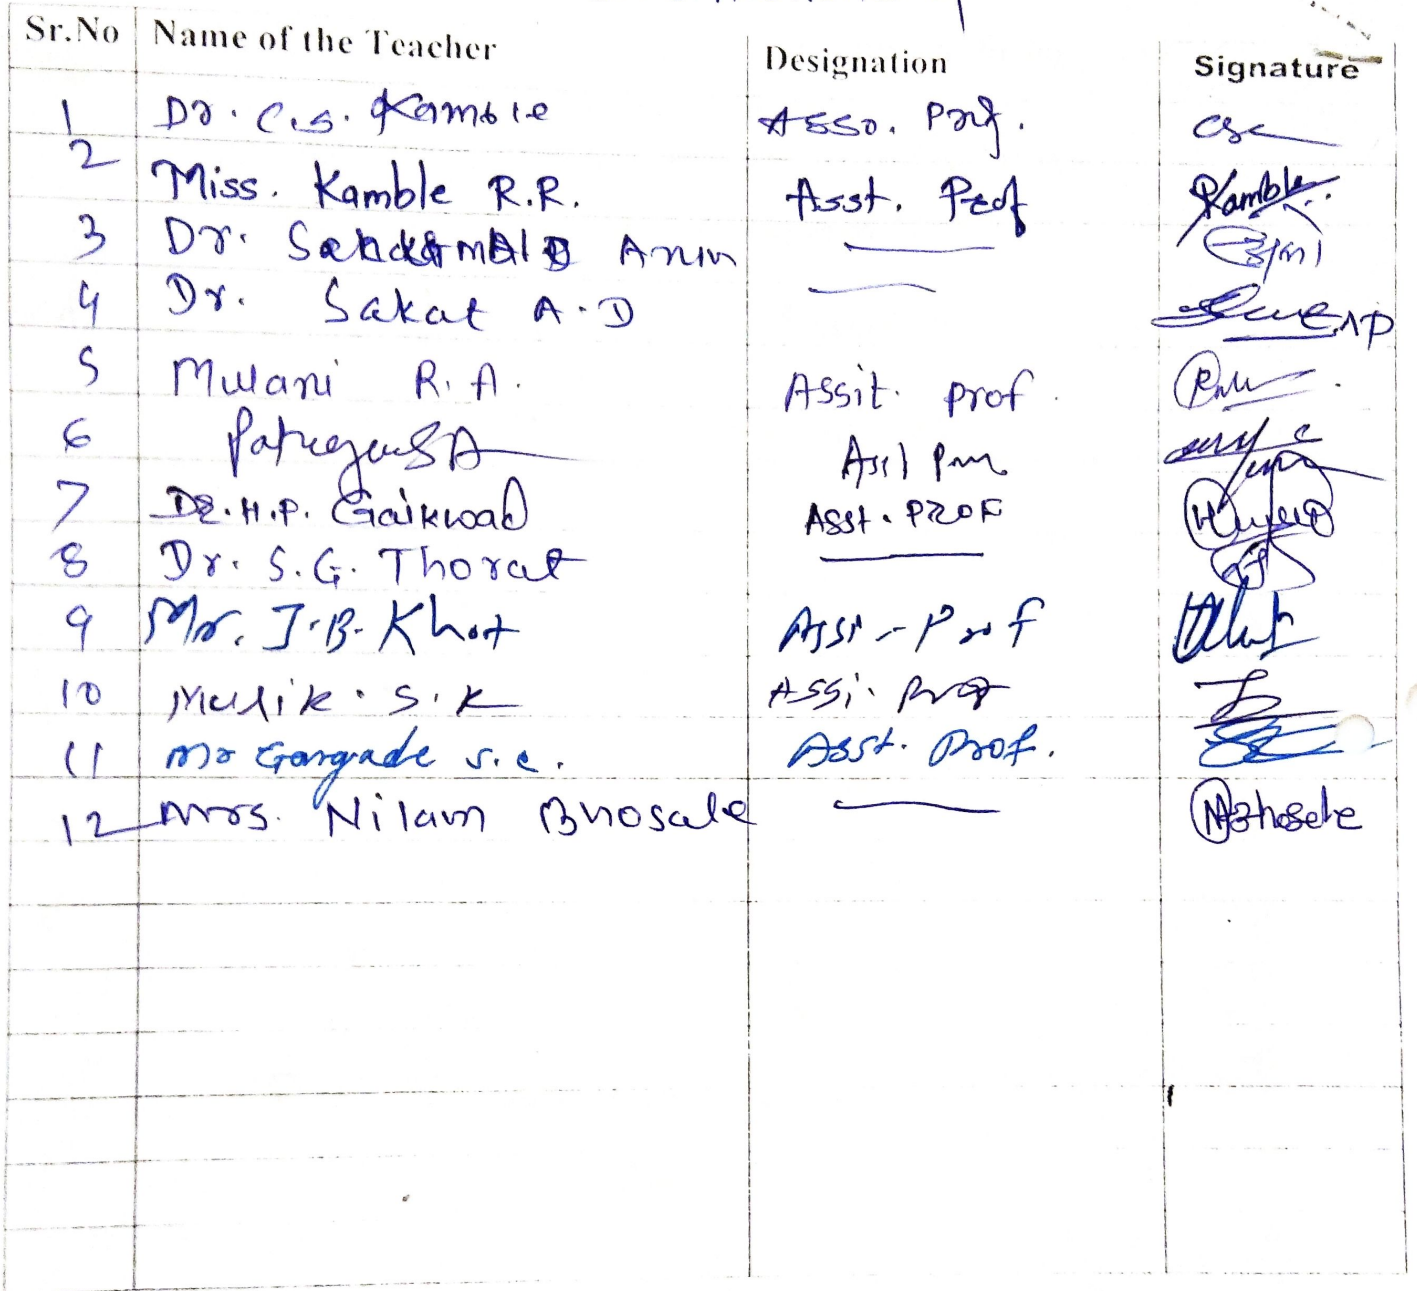 Sr.No Name of the Teacher Designation Signature
1 Dr. C.S. Kamble Asso. Prof.
2 Miss. Kamble R.R. Asst. Prof Kamble
3 Dr.
4 Dr. Sakat A.D
5 Mulani R.A. Assit. prof.
6
7 Dr. H.P. Gaikwad Asst. PROF
8 Dr. S.G. Thorat
9 Mr. J.B. Khot Assi - Prof
10 Mulik. S.K Assi. Prof
11 Mr Gargade S.C. Asst. Prof.
12 Mrs. Nilam Bhosale NBhosele